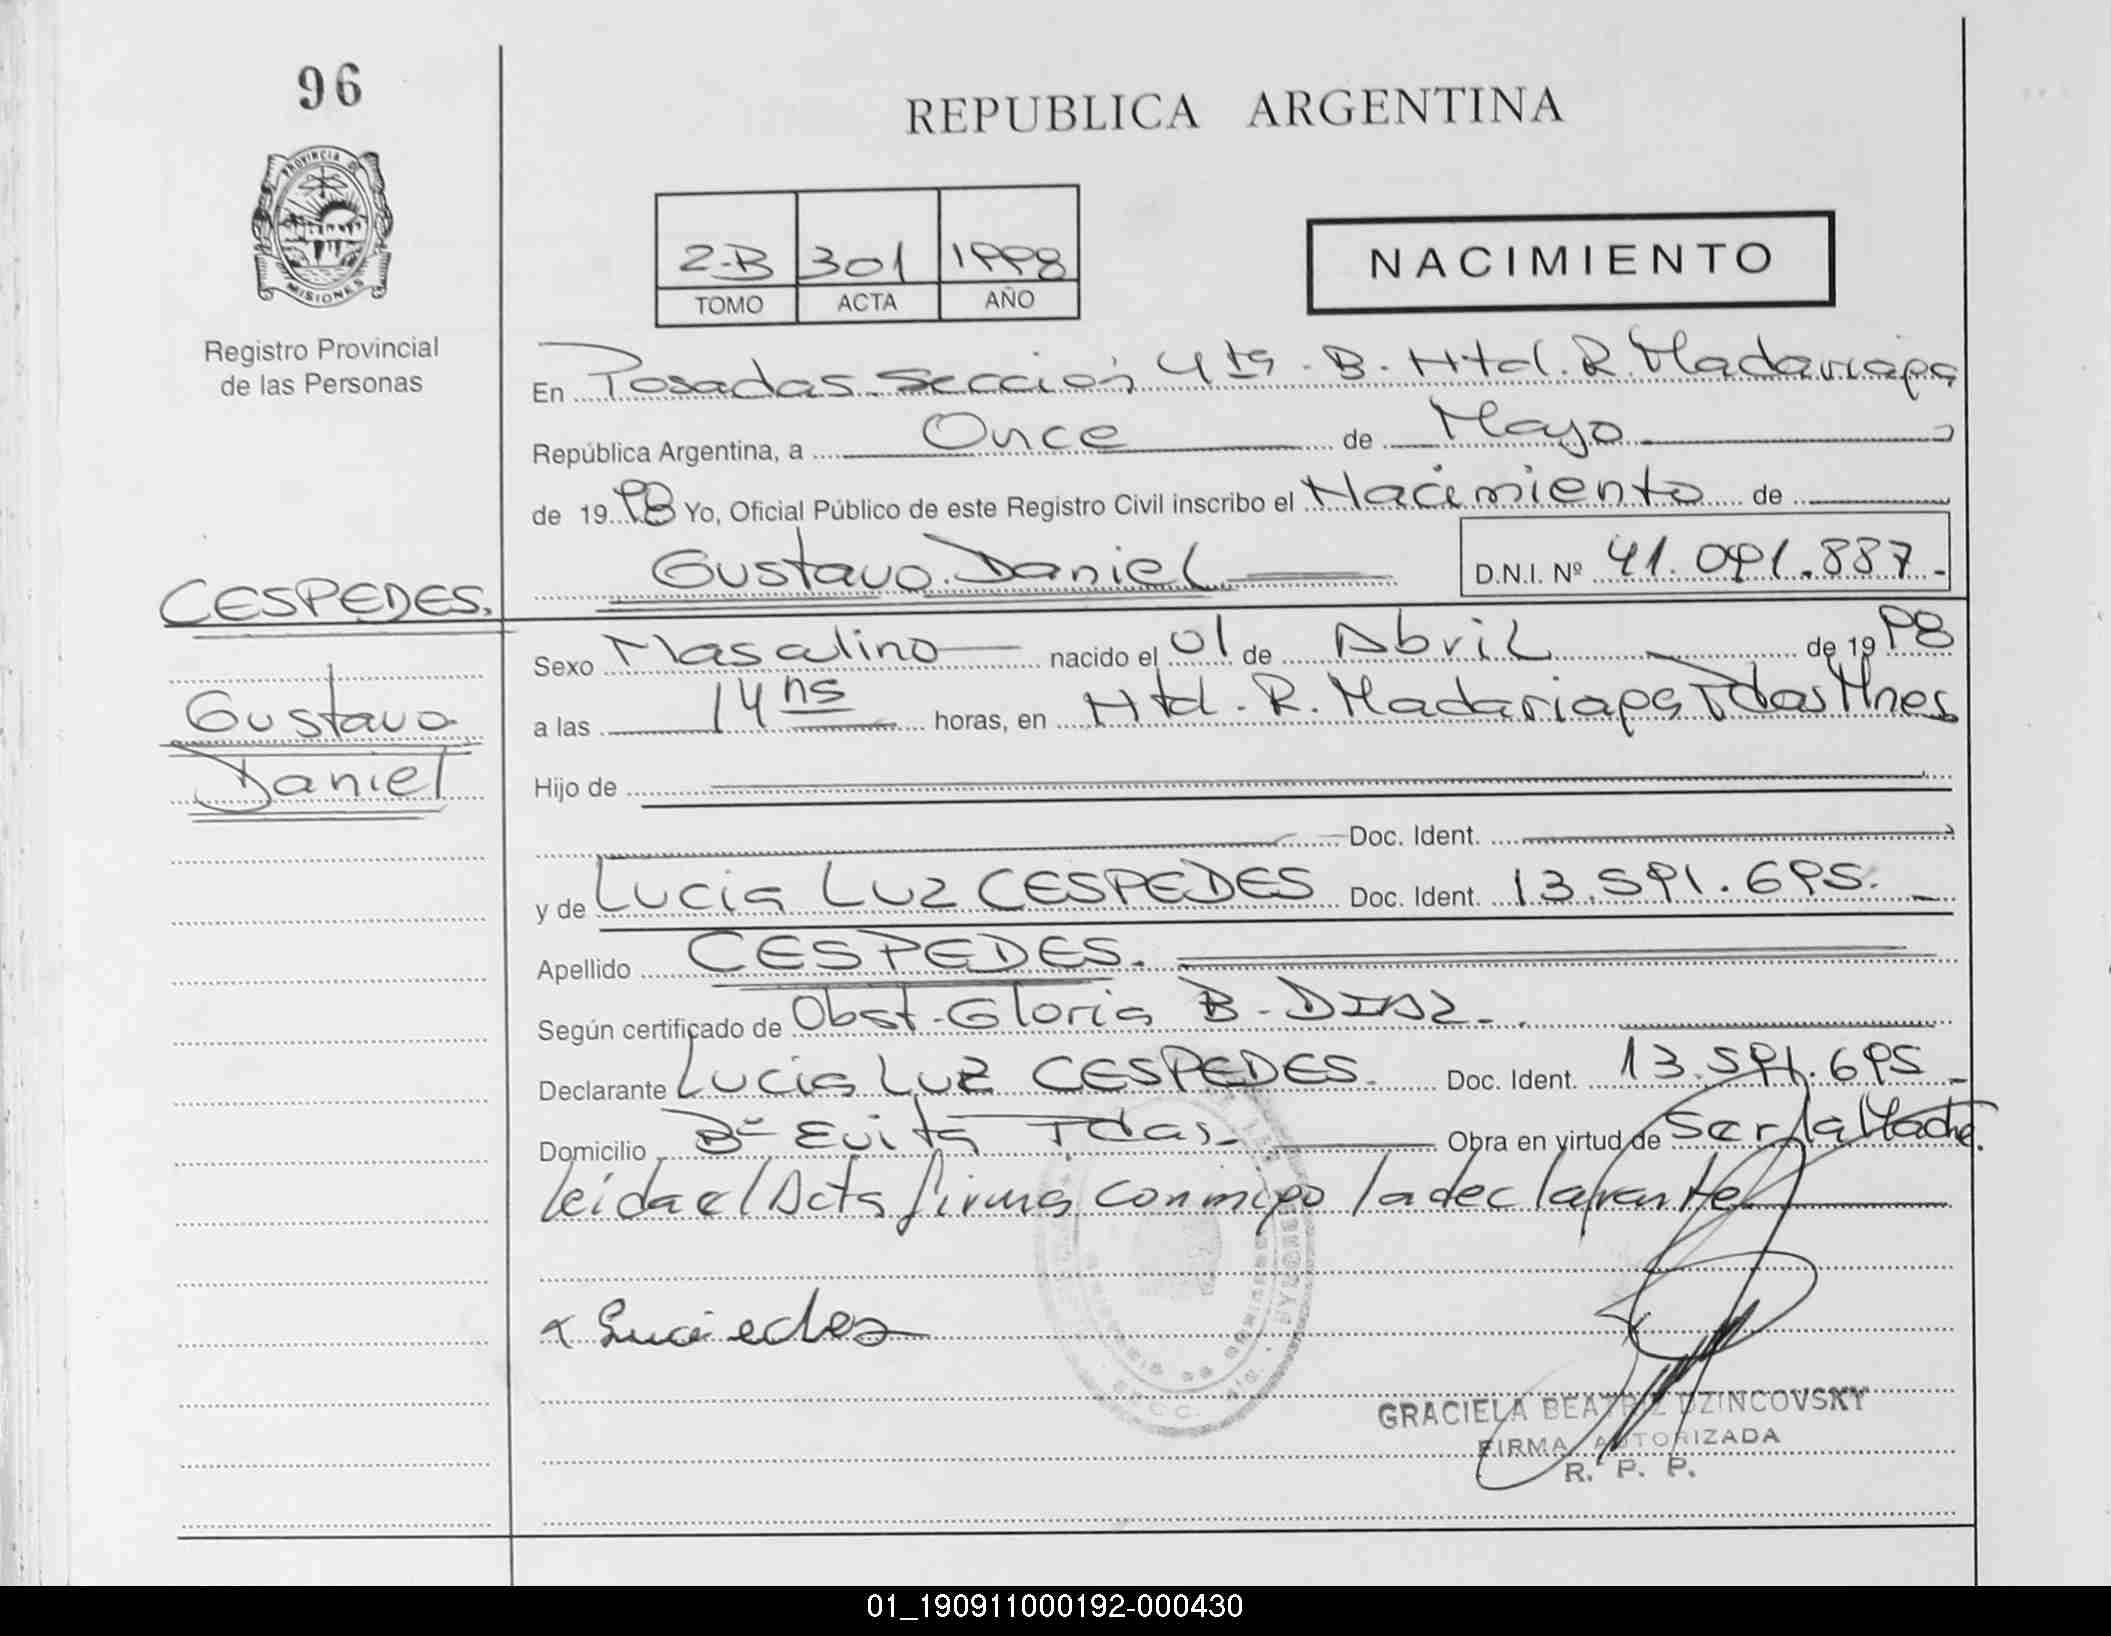 96
PROVINCIA DE
MISIONES
Registro Provincial
de las Personas
REPUBLICA ARGENTINA
2-B 301 1998
TOMO ACTA AÑO
NACIMIENTO
En Posadas Sección 4ta. B. Htal. R. Madariaga
República Argentina, a Once de Mayo
de 1998 Yo, Oficial Público de este Registro Civil inscribo el Nacimiento de
Gustavo Daniel D.N.I. Nº 41.091.887.-
CESPEDES.
Gustavo
Daniel
Sexo Masculino nacido el 01 de Abril de 1998
a las 14 hs horas, en Htal. R. Madariaga Pdas Mnes
Hijo de
Doc. Ident.
y de Lucia Luz CESPEDES Doc. Ident. 13.591.695.-
Apellido CESPEDES.
Según certificado de Obst. Gloria B. DIAZ.-
Declarante Lucia Luz CESPEDES. Doc. Ident. 13.591.695-
Domicilio Bº Evita Pdas.- Obra en virtud de Ser la Madre.
leida el Acta firma conmigo la declarante
GRACIELA BEATRIZ DZINCOVSKY
FIRMA AUTORIZADA
R. P. P.
01_190911000192-000430